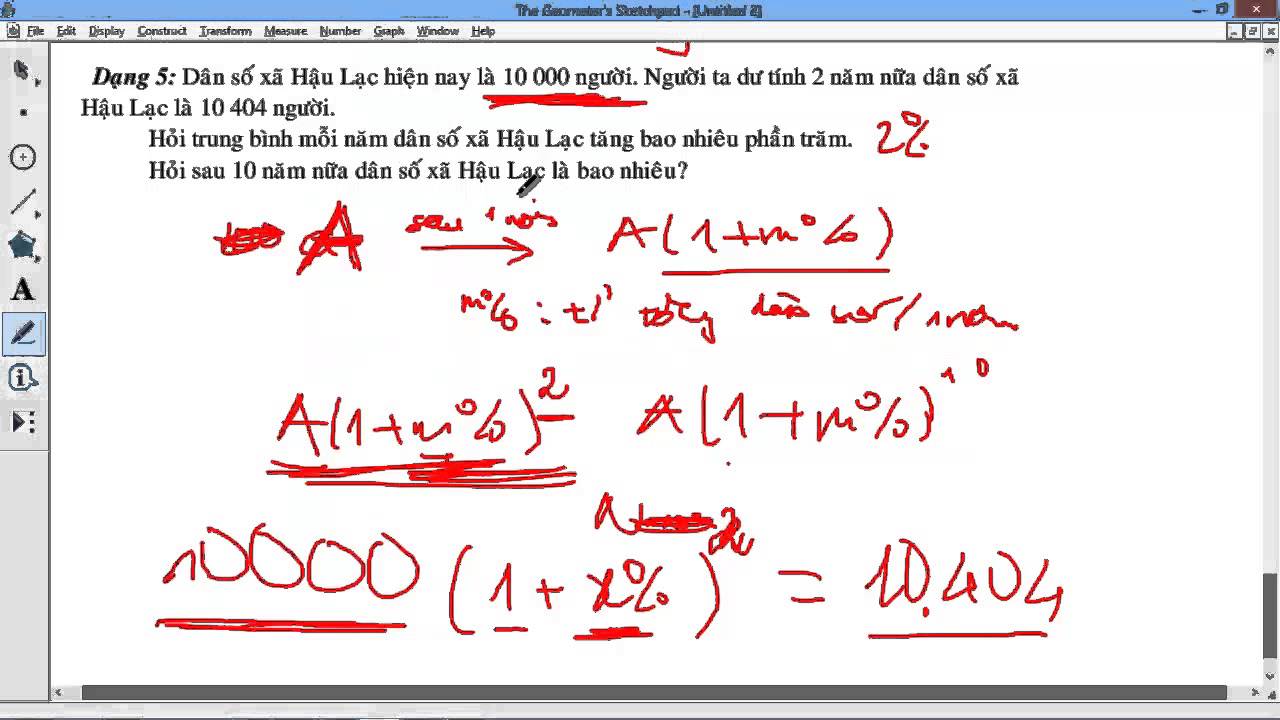 The Geometer's Sketchpad - [Untitled 2]
File Edit Display Construct Transform Measure Number Graph Window Help
Dạng 5: Dân số xã Hậu Lạc hiện nay là 10 000 người. Người ta dư tính 2 năm nữa dân số xã
Hậu Lạc là 10 404 người.
Hỏi trung bình mỗi năm dân số xã Hậu Lạc tăng bao nhiêu phần trăm. 2%
Hỏi sau 10 năm nữa dân số xã Hậu Lạc là bao nhiêu?
A sau 1 năm A(1+m%)
m% : tỉ tăng dân số/1 năm
A(1+m%)² A(1+m%)¹⁰
A
10000 (1+x%)² = 10.404